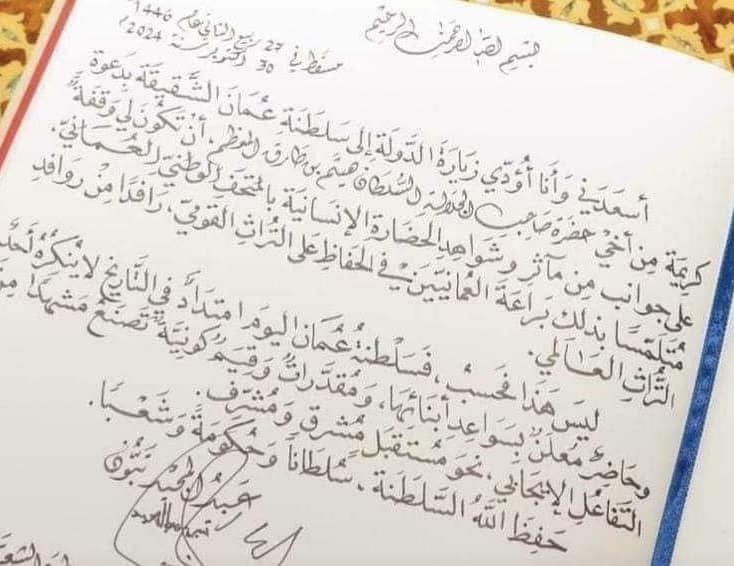 بسم الله الرحمن الرحيم
مسقط في 27 ربيع الثاني عام 1446
30 أكتوبر سنة 2024
أسعدني وأنا أؤدّي زيارة الدولة إلى سلطنة عُمان الشقيقة بدعوة
كريمة من أخي حضرة صاحب الجلالة السلطان هيثم بن طارق المعظم. أن تكون لي وقفةٌ
على جوانب من مآثر وشواهد الحضارة الإنسانية بالمتحف الوطني العُماني.
متلمّسًا بذلك براعة العمانيّين في الحفاظ على التراث القومي، رافدًا من روافد
التراث العالمي.
ليس هذا فحسب، فسلطنة عُمان اليوم امتدادٌ في التاريخ لا ينكره أحد
وحاضرٌ معلنٌ بسواعد أبنائها، ومقدّراتٌ وقيمٌ كونيةٌ تصنع مشهدًا من
التفاعل الإيجابي. نحو مستقبل مشرق ومشرّف.
حفظ الله السلطنة. سلطانًا وحكومةً وشعبًا.
عبد المجيد تبون